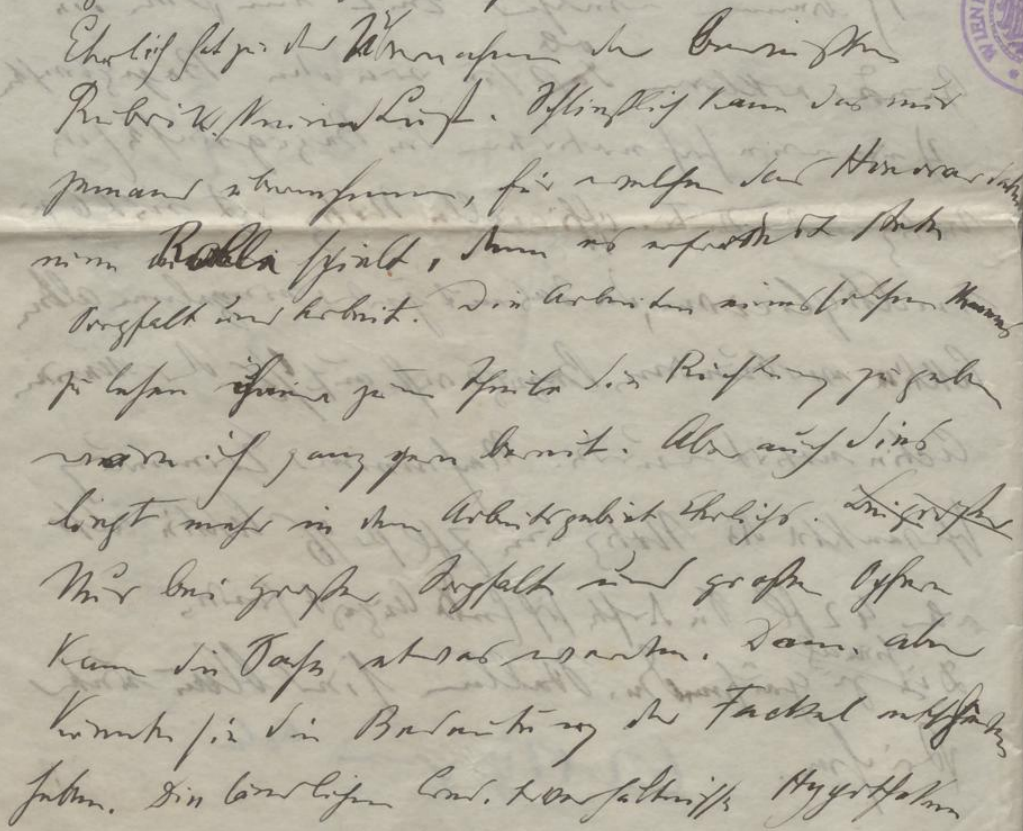 WIEN
Ehrlich hat zu der Übernahme der
Rubrik keine Lust. Schließlich kann das nur
jemand übernehmen, für welchen das Honorar
eine Rolle spielt, denn es erfordert stete
Sorgfalt und Arbeit. Die Arbeiten eines solchen Mannes
zu lesen zum Theile die Richtung zu geben
wäre ich ganz gern bereit. Aber auch dies
liegt mehr in dem Arbeitsgebiet Ehrlichs.
Nur bei großer Sorgfalt und großen Opfern
kann die Sache etwas werden. Dann aber
könnte sie die Bedeutung der Fackel
heben. Die ländlichen Hypotheken